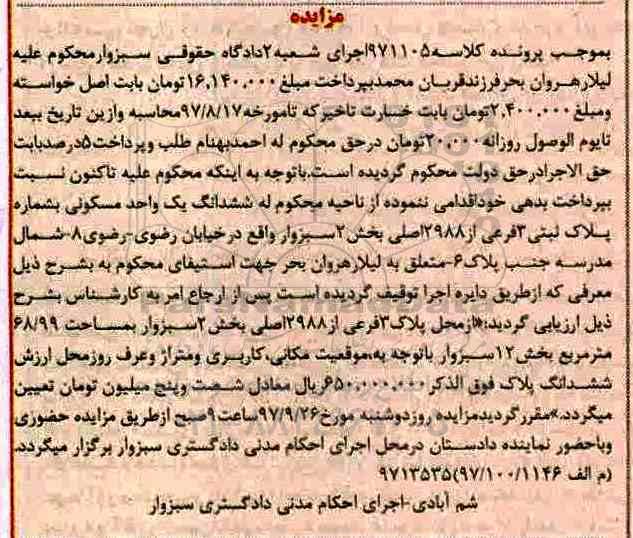 مزایده
بموجب پرونده کلاسه ۹۷۱۱۰۵اجرای شعبه۲دادگاه حقوقی سبزوارمحکوم علیه
لیلارهروان بحرفرزندقربان محمدبپرداخت مبلغ ۱۶,۱۴۰,۰۰۰تومان بابت اصل خواسته
ومبلغ ۲,۴۰۰,۰۰۰تومان بابت خسارت تاخیرکه تامورخه۹۷/۸/۱۷محاسبه وازین تاریخ ببعد
تایوم الوصول روزانه۲۰,۰۰۰تومان درحق محکوم له احمدبهنام طلب وپرداخت۵درصدبابت
حق الاجرادرحق دولت محکوم گردیده است.باتوجه به اینکه محکوم علیه تاکنون نسبت
بپرداخت بدهی خوداقدامی ننموده از ناحیه محکوم له ششدانگ یک واحد مسکونی بشماره
پلاک ثبتی۳فرعی از۲۹۸۸اصلی بخش۲سبزوار واقع درخیابان رضوی-رضوی۸-شمال
مدرسه جنب پلاک۶-متعلق به لیلارهروان بحر جهت استیفای محکوم به بشرح ذیل
معرفی که ازطریق دایره اجرا توقیف گردیده است پس از ارجاع امر به کارشناس بشرح
ذیل ارزیابی گردید:«ازمحل پلاک۳فرعی از۲۹۸۸اصلی بخش۲سبزوار بمساحت ۶۸/۹۹
مترمربع بخش۱۲سبزوار باتوجه به،موقعیت مکانی،کاربری ومتراژ وعرف روزمحل ارزش
ششدانگ پلاک فوق الذکر۶۵۰,۰۰۰,۰۰۰ریال معادل شصت وپنج میلیون تومان تعیین
میگردد.»مقررگردیدمزایده روزدوشنبه مورخ۹۷/۹/۲۶ساعت۹صبح ازطریق مزایده حضوری
وباحضور نماینده دادستان درمحل اجرای احکام مدنی دادگستری سبزوار برگزار میگردد.
(م الف ۹۷/۱۰۰/۱۱۴۶)۹۷۱۳۵۳۵
شم آبادی-اجرای احکام مدنی دادگستری سبزوار